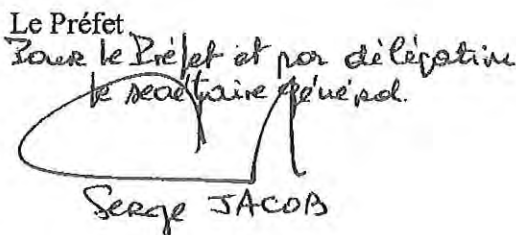 Le Préfet
Pour le Préfet et par délégation
le secrétaire général.
Serge JACOB